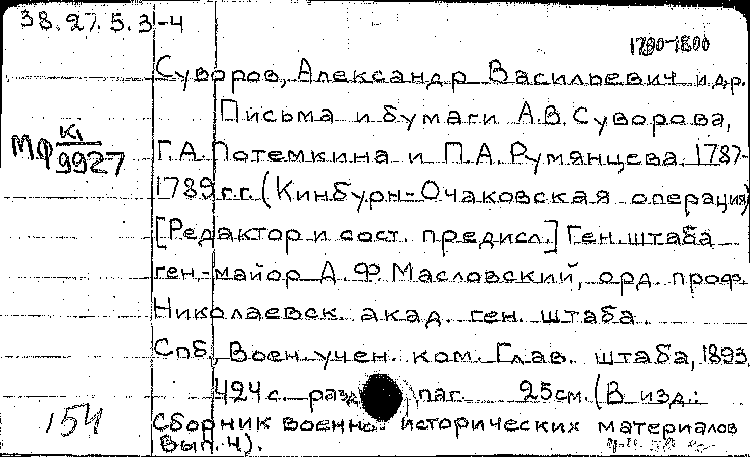 38.27.5.3-4
1790-1800
Суворов, Александр Васильевич и др.
Письма и бумаги А.В. Суворова,
МФ К1/9927
Г.А. Потемкина и П.А. Румянцева. 1787-
1789 г.г. (Кинбурн-Очаковская операция)
[Редактор и сост. предисл.] Ген. штаба
ген.-майор Д. Ф. Масловский, орд. проф.
Николаевск. акад. ген. штаба.
Спб., Воен. учен. ком. Глав. штаба, 1893.
424 с. разд. паг. 25см. (В изд.:
154
Сборник военно-исторических материалов
Вып. 4).